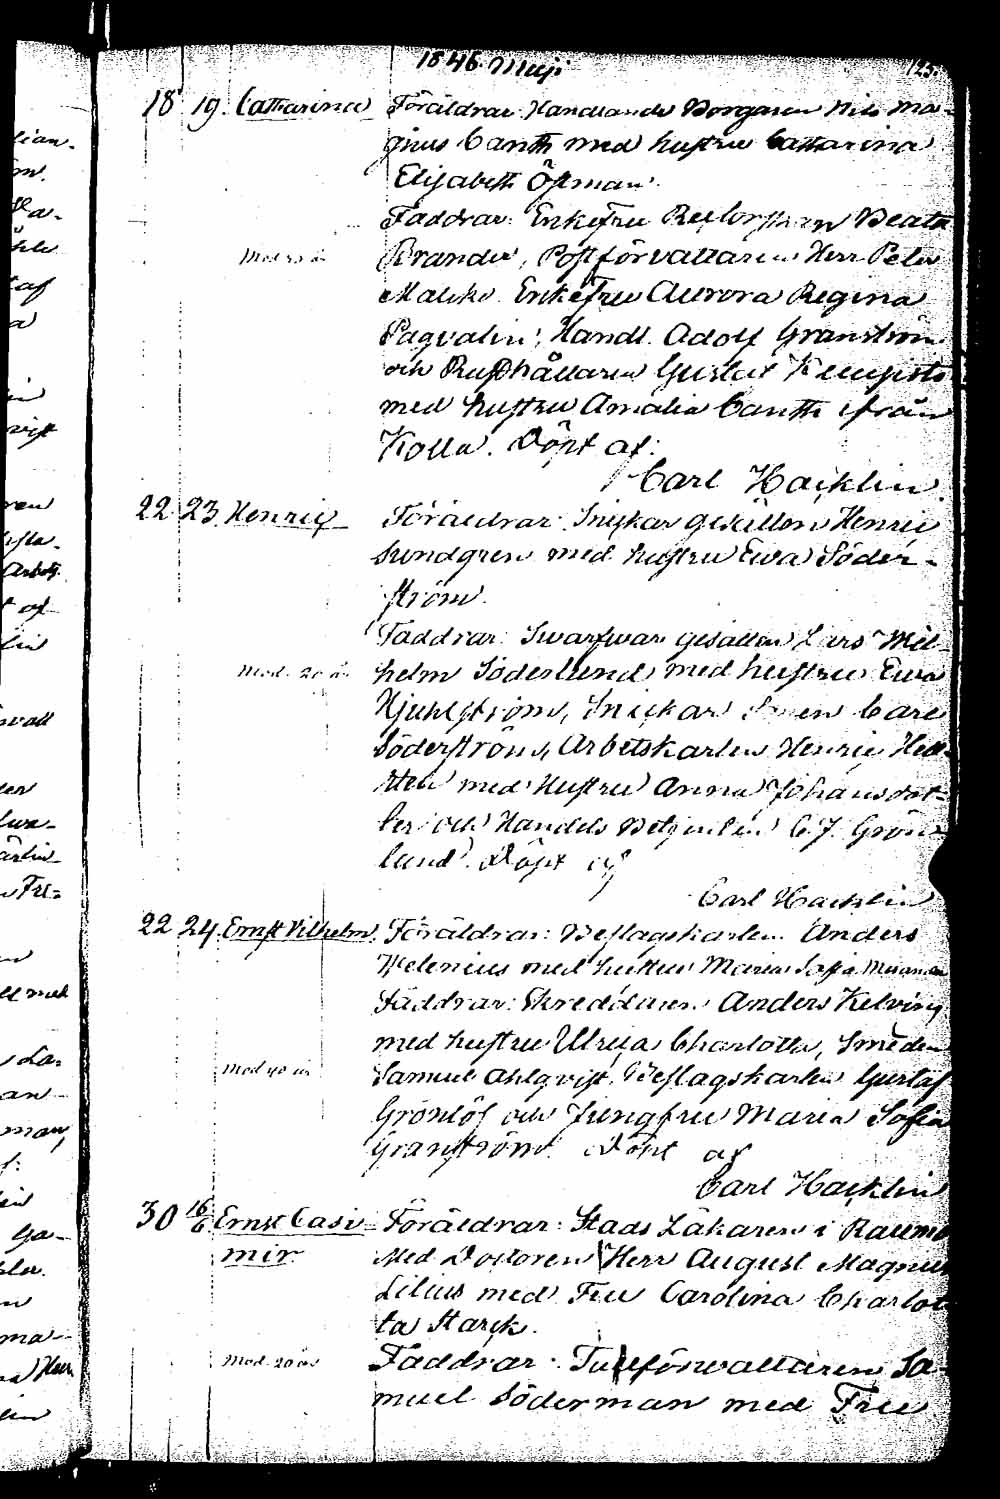 1846 Maji 125.
18 19. Catharina Föräldrar: Handlande Borgaren Nils Ma-
gnus Canth med hustru Catharina
Elisabeth Öhman.
Faddrar: Enkefru Beata
Mod. år Brander, Postförvaltaren Herr Peter
Malcke Enkefru Aurora Regina
Pagvalin, Handl. Adolf Granström
och Rusthållaren Gustaf
med hustru Amalia Canth ifrån
Kolla. Döpt af:
Carl Hacklin
22 23 Henric Föräldrar: Snickar gesällen Henric
Sundgren med hustru Ewa Söder-
ström.
Faddrar: Swarfware gesällen Lars Wil-
Mod. 20 år helm Söderlund med hustru Ewa
Hjuhlström, Snickar Carl
Söderström, Arbetskarlen Henric Hell-
sten med Hustru Anna Johansdot-
ter och Handels Betjenten C. J. Grön-
lund. Döpt af
Carl Hacklin
22 24. Ernst Vilhelm. Föräldrar: Beslagskarlen Anders
Welenius med hustru Maria Sofia
Faddrar: Skreddaren Anders Kelving
med hustru Ulrica Charlotta, Smeden
Mod 40 år Samuel Ahlqvist, Beslagskarlen Gustaf
Grönlöf och Jungfru Maria Sofia
Granström. Döpt af
Carl Hacklin
30 16/6 Ernst Casi- Föräldrar: Stads Läkaren i Raumo
mir Med Doctoren Herr August Magnus
Lilius med Fru Carolina Charlot-
ta Starck.
Mod. 20 år Faddrar: Tullförwaltaren Sa-
muel Söderman med Fru